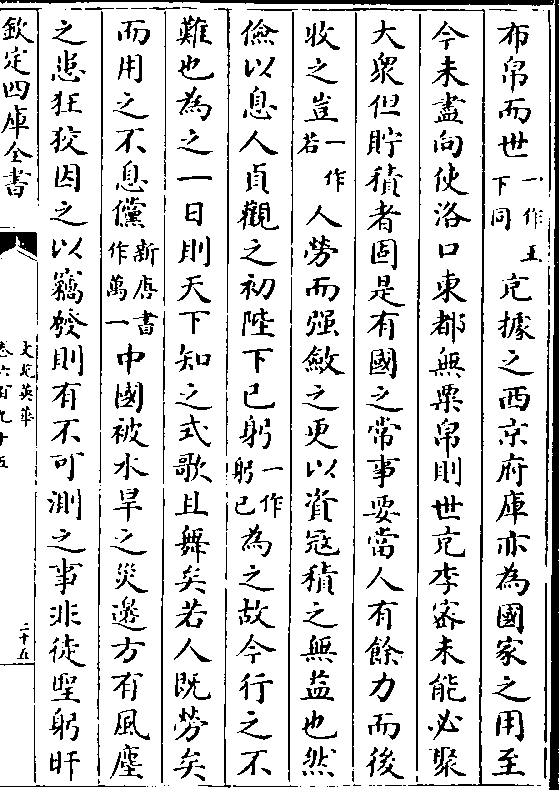 布帛而世一作王下同充據之西京府庫亦為國家之用至
今未盡向使洛口東都無粟帛則世充李密未能必聚
大衆但貯積者固是有國之常事要當人有餘力而後
收之豈一作若人勞而强斂之更以資冦積之無益也然
儉以息人貞觀之初陛下已躬一作躬已為之故今行之不
難也為之一日則天下知之式歌且舞矣若人既勞矣
而用之不息儻新唐書作萬一中國被水旱之災邊方有風塵
之患狂狡因之以竊發則有不可測之事非徒聖躬旰
欽定四庫全書
文苑英華
卷六百九十五
二十五